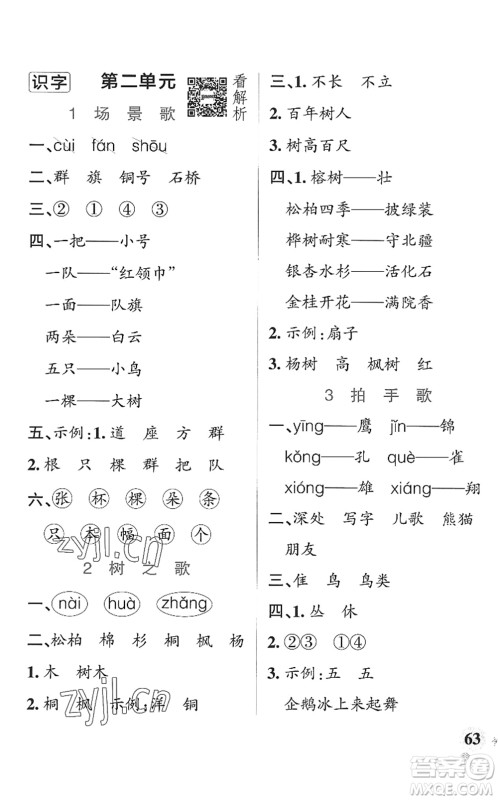 识字 第二单元 看解析
1 场景歌
一、cùi fán shōu
二、群 旗 铜号 石桥
三、② ① ④ ③
四、一把——小号
一队——“红领巾”
一面——队旗
两朵——白云
五只——小鸟
一棵——大树
五、示例:1. 道 座 方 群
2. 根 只 棵 群 把 队
六、张 杯 棵 朵 条
只 本 幅 面 个
2 树之歌
一、nài huà zhǎng
二、松柏 棉 杉 桐 枫 杨
1. 木 树木
2. 桐 枫 示例:洋 铜
三、1. 不长 不立
2. 百年树人
3. 树高百尺
四、1. 榕树——壮
松柏四季——披绿装
桦树耐寒——守北疆
银杏水杉——活化石
金桂开花——满院香
2. 示例:扇子
3. 杨树 高 枫树 红
3 拍手歌
一、yīng——鹰 jǐn——锦
kǒng——孔 què——雀
xióng——雄 xiáng——翔
二、深处 写字 儿歌 熊猫
朋友
三、隹 鸟 鸟类
四、1. 丛 休
2. ②③ ①④
3. 示例:五 五
企鹅冰上来起舞
63
zyjl.cn
zyjl.cn
答案圈
MXQE.COM